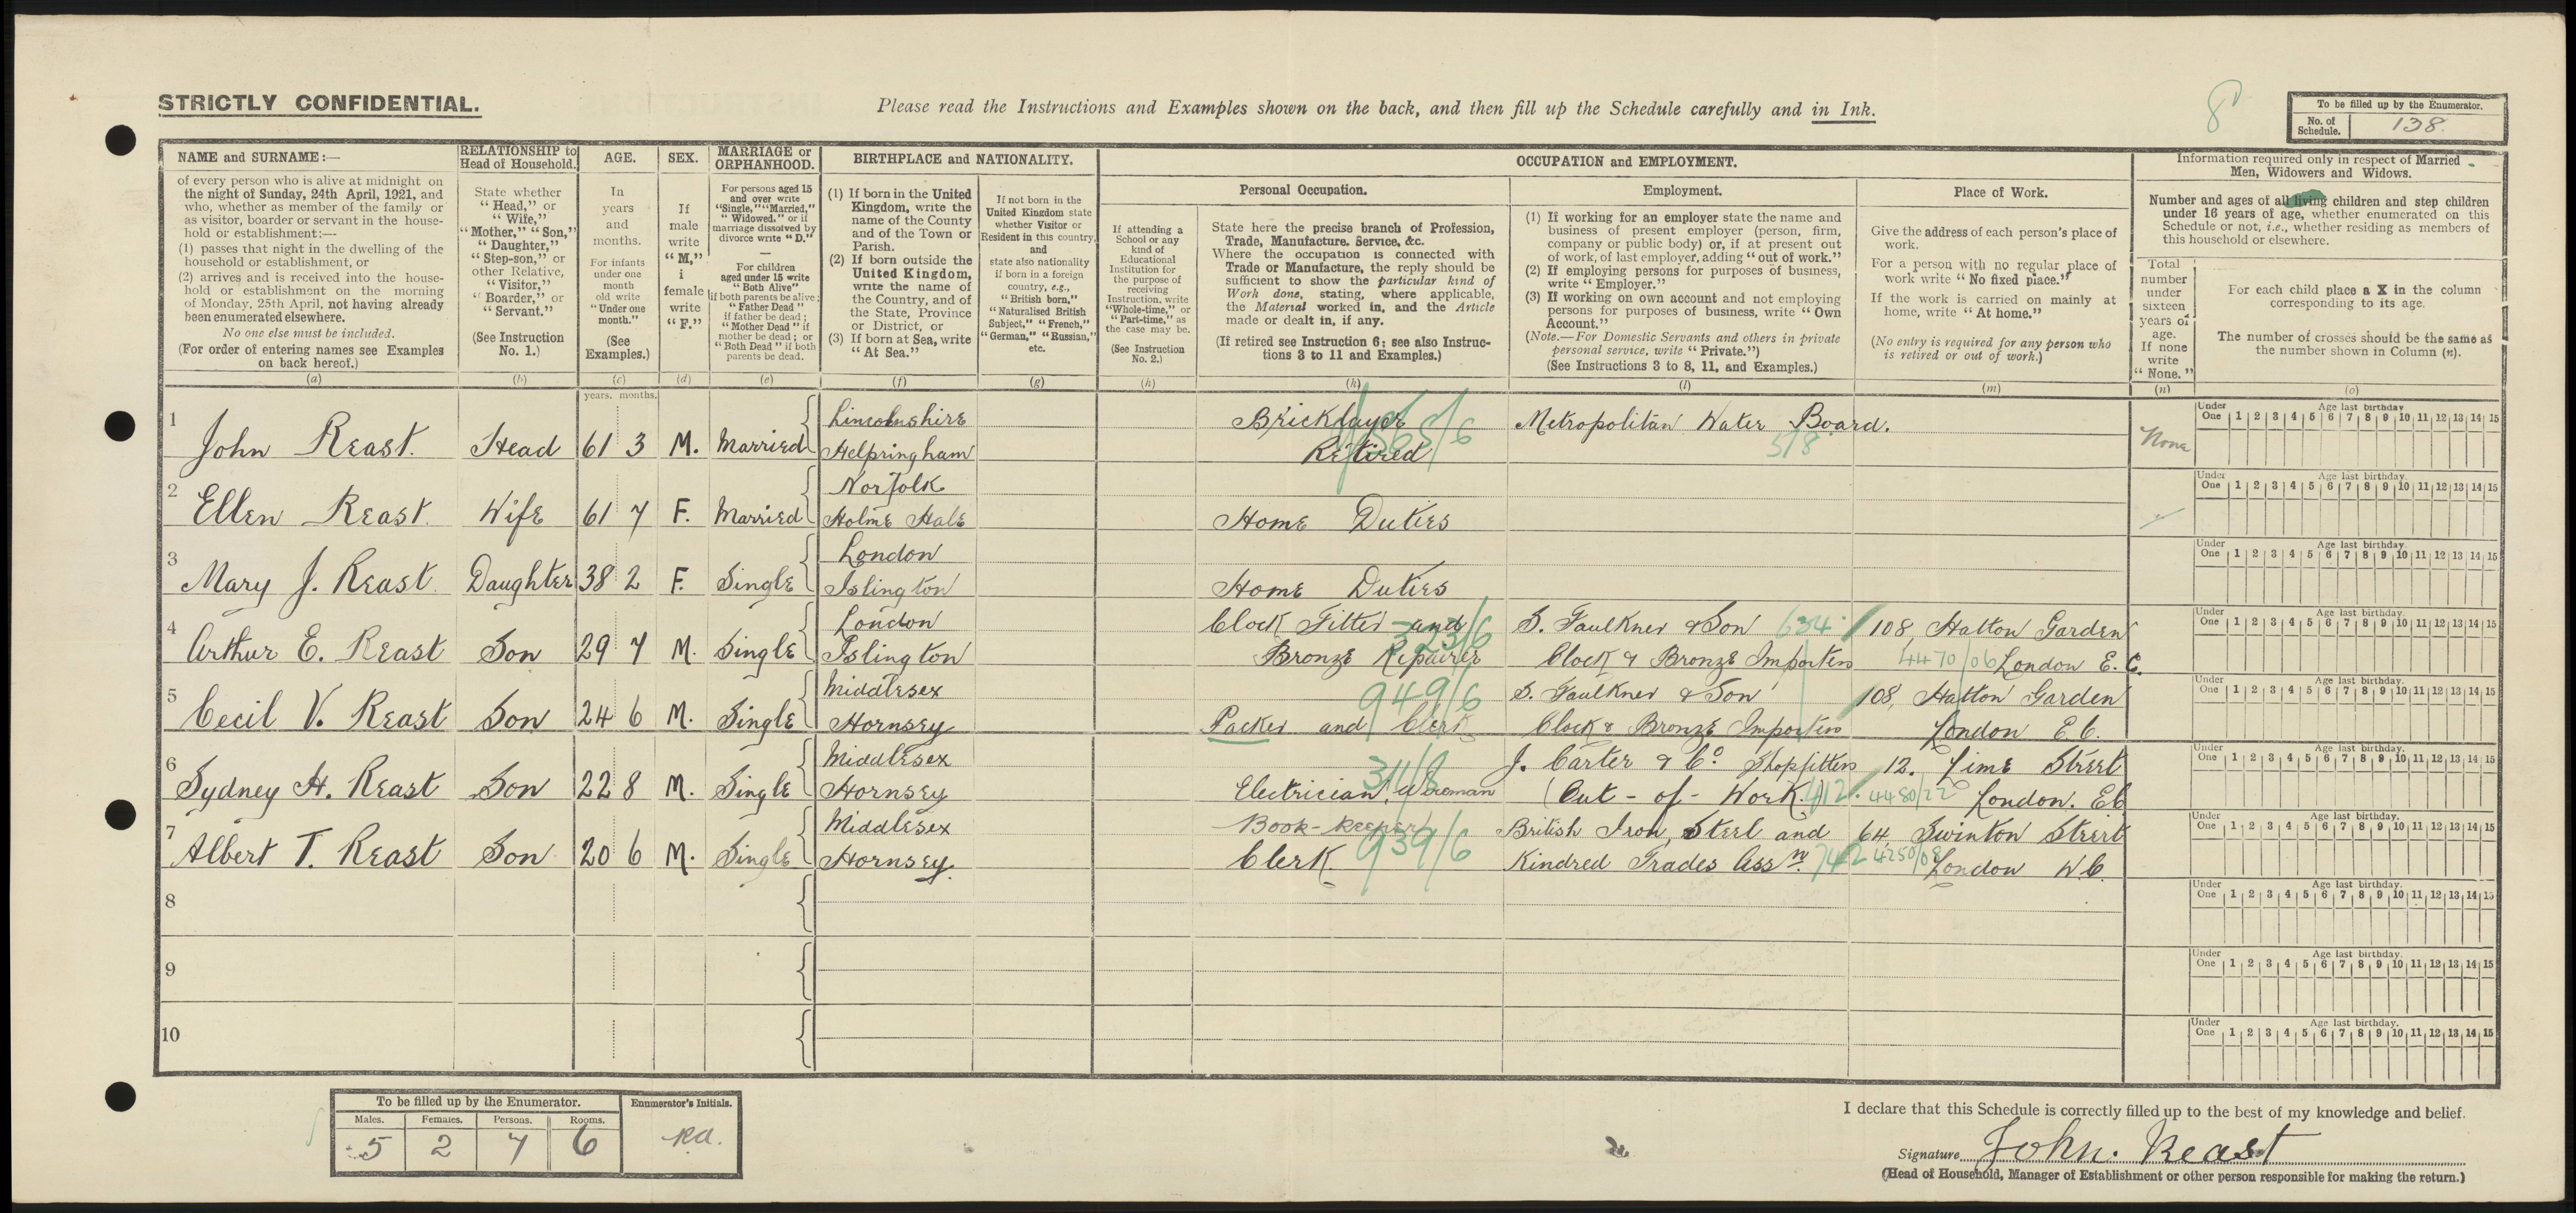 STRICTLY CONFIDENTIAL.
Please read the Instructions and Examples shown on the back, and then fill up the Schedule carefully and in Ink.
8
To be filled up by the Enumerator.
No. of Schedule. 138.
NAME and SURNAME:—
of every person who is alive at midnight on
the night of Sunday, 24th April, 1921, and
who, whether as member of the family or
as visitor, boarder or servant in the house-
hold or establishment:—
(1) passes that night in the dwelling of the
household or establishment, or
(2) arrives and is received into the house-
hold or establishment on the morning
of Monday, 25th April, not having already
been enumerated elsewhere.
No one else must be included.
(For order of entering names see Examples
on back hereof.)
(a)
RELATIONSHIP to
Head of Household.
State whether
"Head," or
"Wife,"
"Mother," "Son,"
"Daughter,"
"Step-son," or
other Relative,
"Visitor,"
"Boarder," or
"Servant."
(See Instruction
No. 1.)
(b)
AGE.
In
years
and
months.
For infants
under one
month
old write
"Under one
month."
(See
Examples.)
(c)
years. months.
SEX.
If
male
write
"M,"
i
female
write
"F."
(d)
MARRIAGE or
ORPHANHOOD.
For persons aged 15
and over write
"Single," "Married,"
"Widowed," or if
marriage dissolved by
divorce write "D."
For children
aged under 15 write
"Both Alive"
if both parents be alive;
"Father Dead"
if father be dead;
"Mother Dead" if
mother be dead; or
"Both Dead" if both
parents be dead.
(e)
BIRTHPLACE and NATIONALITY.
(1) If born in the United
Kingdom, write the
name of the County
and of the Town or
Parish.
(2) If born outside the
United Kingdom,
write the name of
the Country, and of
the State, Province
or District, or
(3) If born at Sea, write
"At Sea."
(f)
If not born in the
United Kingdom state
whether Visitor or
Resident in this country,
and
state also nationality
if born in a foreign
country, e.g.,
"British born,"
"Naturalised British
Subject," "French,"
"German," "Russian,"
etc.
(g)
OCCUPATION and EMPLOYMENT.
If attending a
School or any
kind of
Educational
Institution for
the purpose of
receiving
Instruction, write
"Whole-time," or
"Part-time," as
the case may be.
(See Instruction
No. 2.)
(h)
Personal Occupation.
State here the precise branch of Profession,
Trade, Manufacture, Service, &c.
Where the occupation is connected with
Trade or Manufacture, the reply should be
sufficient to show the particular kind of
Work done, stating, where applicable,
the Material worked in, and the Article
made or dealt in, if any.
(If retired see Instruction 6; see also Instruc-
tions 3 to 11 and Examples.)
(k)
Employment.
(1) If working for an employer state the name and
business of present employer (person, firm,
company or public body) or, if at present out
of work, of last employer, adding "out of work."
(2) If employing persons for purposes of business,
write "Employer."
(3) If working on own account and not employing
persons for purposes of business, write "Own
Account."
(Note.—For Domestic Servants and others in private
personal service, write "Private.")
(See Instructions 3 to 8, 11, and Examples.)
(l)
Place of Work.
Give the address of each person's place of
work.
For a person with no regular place of
work write "No fixed place."
If the work is carried on mainly at
home, write "At home."
(No entry is required for any person who
is retired or out of work.)
(m)
Information required only in respect of Married
Men, Widowers and Widows.
Number and ages of all living children and step children
under 16 years of age, whether enumerated on this
Schedule or not, i.e., whether residing as members of
this household or elsewhere.
Total
number
under
sixteen
years of
age.
If none
write
"None."
(n)
For each child place a X in the column
corresponding to its age.
The number of crosses should be the same as
the number shown in Column (n).
(o)
1 John Reast. Head 61 3 M. Married Lincolnshire Helpringham Bricklayer Retired Metropolitan Water Board. 5/8 None
Under One Age last birthday 1 2 3 4 5 6 7 8 9 10 11 12 13 14 15
2 Ellen Reast. Wife 61 7 F. Married Norfolk Holme Hale Home Duties
Under One Age last birthday. 1 2 3 4 5 6 7 8 9 10 11 12 13 14 15
3 Mary J. Reast. Daughter 38 2 F. Single London Islington Home Duties
Under One Age last birthday. 1 2 3 4 5 6 7 8 9 10 11 12 13 14 15
4 Arthur E. Reast Son 29 7 M. Single London Islington Clock Fitter and Bronze Repairer 323/6 S. Faulkner & Son 634 Clock & Bronze Importers 108, Hatton Garden 4470/06 London E.C.
Under One Age last birthday. 1 2 3 4 5 6 7 8 9 10 11 12 13 14 15
5 Cecil V. Reast Son 24 6 M. Single Middlesex Hornsey Packer and Clerk 949/6 S. Faulkner & Son Clock & Bronze Importers 108, Hatton Garden London E C.
Under One Age last birthday. 1 2 3 4 5 6 7 8 9 10 11 12 13 14 15
6 Sydney H. Reast Son 22 8 M. Single Middlesex Hornsey Electrician, Wireman 311/8 J. Carter & Co Shopfitters (Out-of-Work.) 412 12. Lime Street 4480/22 London. E C
Under One Age last birthday. 1 2 3 4 5 6 7 8 9 10 11 12 13 14 15
7 Albert T. Reast Son 20 6 M. Single Middlesex Hornsey. Book-keeper Clerk. 939/6 British Iron, Steel and Kindred Trades Assn. 742 64, Swinton Street 4250/08 London W.C.
Under One Age last birthday. 1 2 3 4 5 6 7 8 9 10 11 12 13 14 15
8
Under One Age last birthday. 1 2 3 4 5 6 7 8 9 10 11 12 13 14 15
9
Under One Age last birthday. 1 2 3 4 5 6 7 8 9 10 11 12 13 14 15
10
Under One Age last birthday. 1 2 3 4 5 6 7 8 9 10 11 12 13 14 15
To be filled up by the Enumerator.
Males. Females. Persons. Rooms.
5 2 7 6
Enumerator's Initials.
I declare that this Schedule is correctly filled up to the best of my knowledge and belief.
Signature John. Reast
(Head of Household, Manager of Establishment or other person responsible for making the return.)